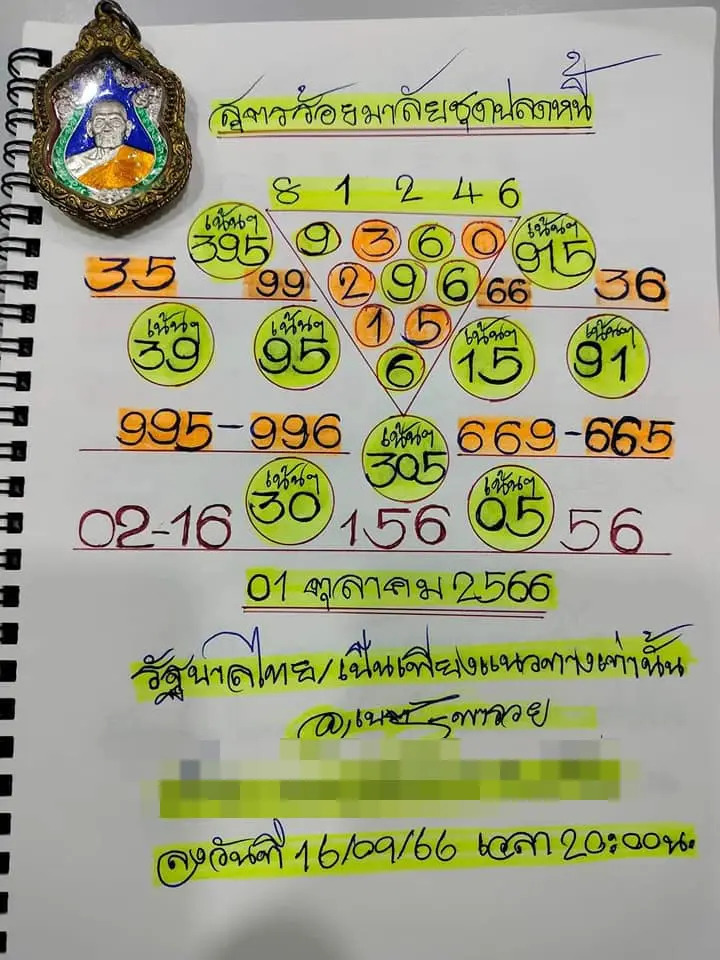 สูตรร้อยมาลัยชุดปลดหนี้
8 1 2 4 6
เน้นๆ 395 9 3 6 0 เน้นๆ 915
35 99 2 9 6 66 36
เน้นๆ 39 เน้นๆ 95 1 5 เน้นๆ 15 เน้นๆ 91
6
995-996 เน้นๆ 305 669-665
02-16 เน้นๆ 30 156 เน้นๆ 05 56
01 ตุลาคม 2566
รัฐบาลไทย/เป็นเพียงแนวทางเท่านั้น
ลงวันที่ 16/09/66 เวลา 20:00น.